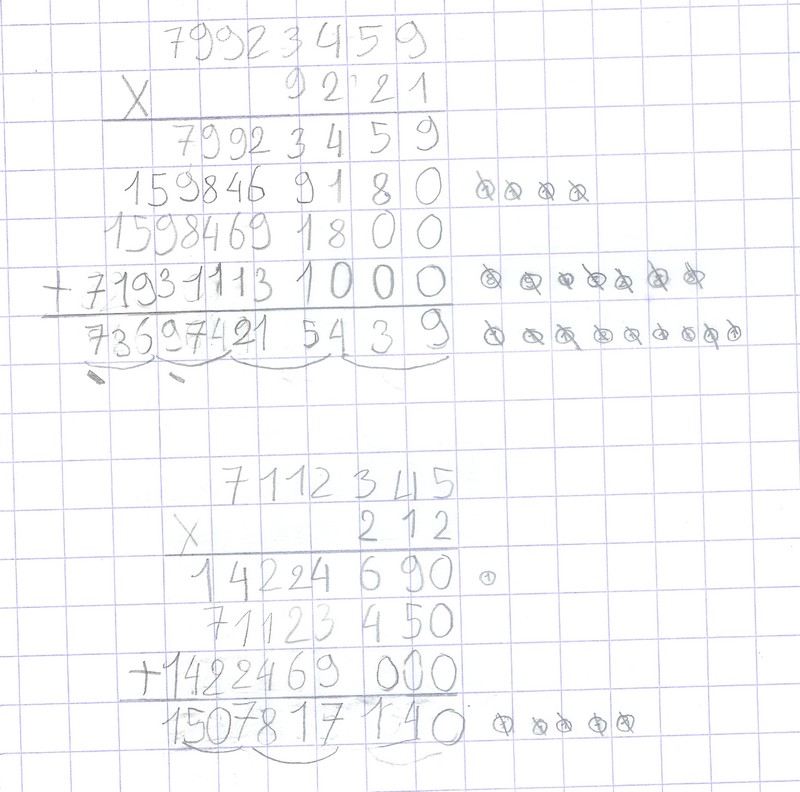 79923459
X 9221
79923459
1598469180
15984691800
+719311131000
736974215439
7112345
X 212
14224690 1
71123450
+1422469000
1507817140